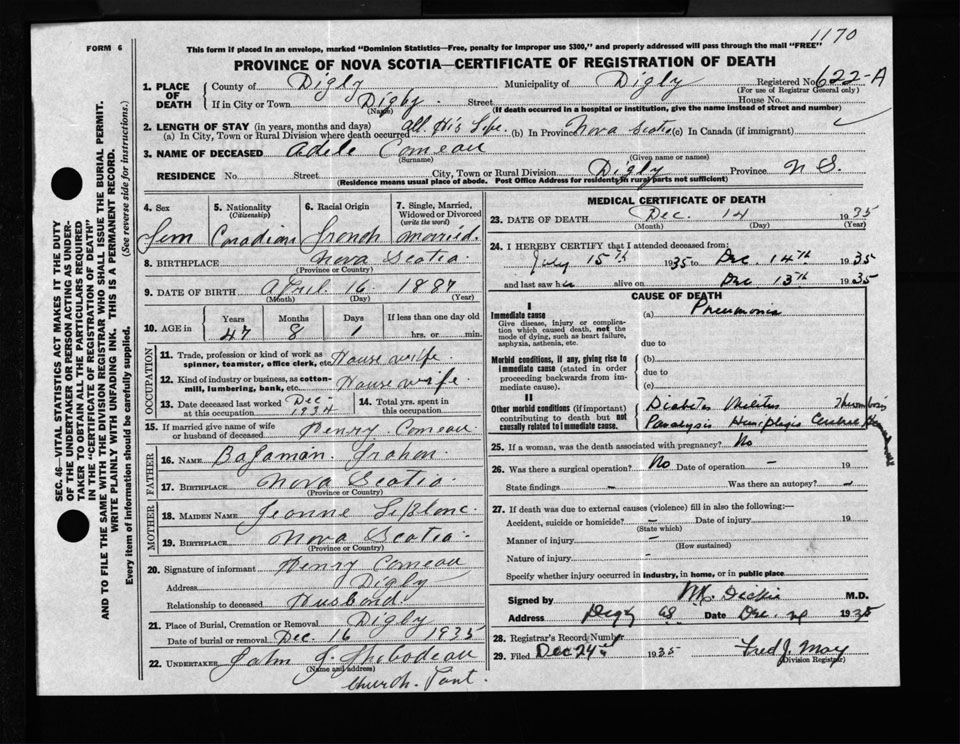 1170
FORM 6
This form if placed in an envelope, marked "Dominion Statistics—Free, penalty for improper use $300," and properly addressed will pass through the mail "FREE"
PROVINCE OF NOVA SCOTIA—CERTIFICATE OF REGISTRATION OF DEATH
SEC. 46—VITAL STATISTICS ACT MAKES IT THE DUTY
OF THE UNDERTAKER OR PERSON ACTING AS UNDER-
TAKER TO OBTAIN ALL THE PARTICULARS REQUIRED
IN THE "CERTIFICATE OF REGISTRATION OF DEATH"
AND TO FILE THE SAME WITH THE DIVISION REGISTRAR WHO SHALL ISSUE THE BURIAL PERMIT.
WRITE PLAINLY WITH UNFADING INK. THIS IS A PERMANENT RECORD.
Every item of information should be carefully supplied. (See reverse side for instructions.)
1. PLACE OF DEATH
County of Digby Municipality of Digby Registered No. 622-A
(For use of Registrar General only)
If in City or Town Digby. Street House No.
(Name) (If death occurred in a hospital or institution, give the name instead of street and number)
2. LENGTH OF STAY (in years, months and days)
(a) In City, Town or Rural Division where death occurred All His Life. (b) In Province Nova Scotia (c) In Canada (if immigrant)
3. NAME OF DECEASED Adele Comeau
(Surname) (Given name or names)
RESIDENCE No. Street City, Town or Rural Division Digby Province N S.
(Residence means usual place of abode. Post Office Address for residents in rural parts not sufficient)
4. Sex 5. Nationality (Citizenship) 6. Racial Origin 7. Single, Married, Widowed or Divorced (write the word)
Fem Canadian French Married.
8. BIRTHPLACE Nova Scotia.
(Province or Country)
9. DATE OF BIRTH April 16 1887
(Month) (Day) (Year)
10. AGE in Years Months Days If less than one day old
47 8 1 hrs. or min.
OCCUPATION
11. Trade, profession or kind of work as spinner, teamster, office clerk, etc. House wife.
12. Kind of industry or business, as cotton-mill, lumbering, bank, etc. House wife.
13. Date deceased last worked at this occupation Dec- 1934 14. Total yrs. spent in this occupation
15. If married give name of wife or husband of deceased Henry Comeau
FATHER
16. NAME
17. BIRTHPLACE Nova Scotia.
(Province or Country)
MOTHER
18. MAIDEN NAME Jeanne LeBlanc.
19. BIRTHPLACE Nova Scotia.
(Province or Country)
20. Signature of informant Henry Comeau
Address Digby
Relationship to deceased Husband.
21. Place of Burial, Cremation or Removal Digby
Date of burial or removal Dec. 16 1935
22. UNDERTAKER John Thibodeau
(Name and address)
Church. Point.
MEDICAL CERTIFICATE OF DEATH
23. DATE OF DEATH Dec. 14 1935
(Month) (Day) (Year)
24. I HEREBY CERTIFY that I attended deceased from:
July 15th 1935 to Dec. 14th 1935
and last saw her alive on Dec 13th 1935
CAUSE OF DEATH
I
Immediate cause
Give disease, injury or complication which caused death, not the mode of dying, such as heart failure, asphyxia, asthenia, etc.
(a) Pneumonia
due to
Morbid conditions, if any, giving rise to immediate cause (stated in order proceeding backwards from immediate cause).
(b)
due to
(c)
II
Other morbid conditions (if important) contributing to death but not causally related to immediate cause.
Diabetes Mellitus Thrombosis
Paralysis Hemiplegia Cerebral
25. If a woman, was the death associated with pregnancy? No
26. Was there a surgical operation? No Date of operation — 19
State findings — Was there an autopsy? —
27. If death was due to external causes (violence) fill in also the following:—
Accident, suicide or homicide? — Date of injury 19
(State which)
Manner of injury —
(How sustained)
Nature of injury -
Specify whether injury occurred in industry, in home, or in public place
Signed by Dickie M.D.
Address Digby NS Date Dec. 1935
28. Registrar's Record Number
29. Filed Dec 24th 1935 Fred J. May
(Division Registrar)